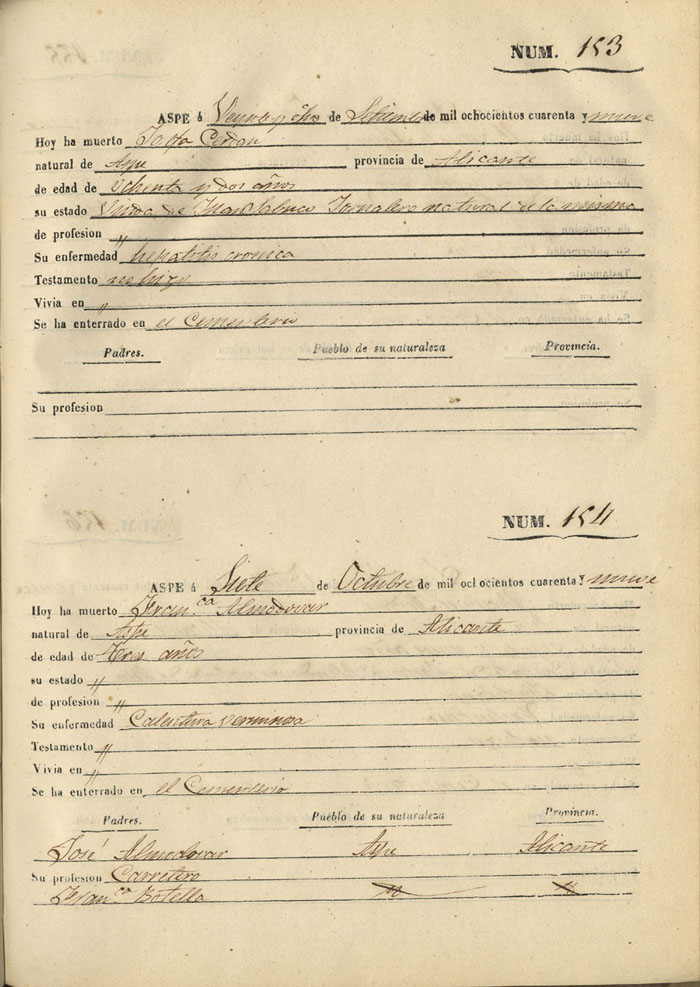 NUM. 153
ASPE á Veynte y ocho de Setiembre de mil ochocientos cuarenta y nueve
Hoy ha muerto Josefa Cerdan
natural de Aspe provincia de Alicante
de edad de ochenta y dos años
su estado Viuda de Juan Jornalero natural de la misma
de profesion "
Su enfermedad hepatitis cronica
Testamento no hizo
Vivia en "
Se ha enterrado en el Cementerio
Padres. Pueblo de su naturaleza Provincia.
Su profesion
NUM. 154
ASPE á Siete de Octubre de mil ochocientos cuarenta y nueve
Hoy ha muerto Fran.ca Almodovar
natural de Aspe provincia de Alicante
de edad de Tres años
su estado "
de profesion "
Su enfermedad Calentura verminosa
Testamento "
Vivia en "
Se ha enterrado en el Cementerio
Padres. Pueblo de su naturaleza Provincia.
José Almodovar Aspe Alicante
Su profesion Carretero
Fran.ca Botella " "